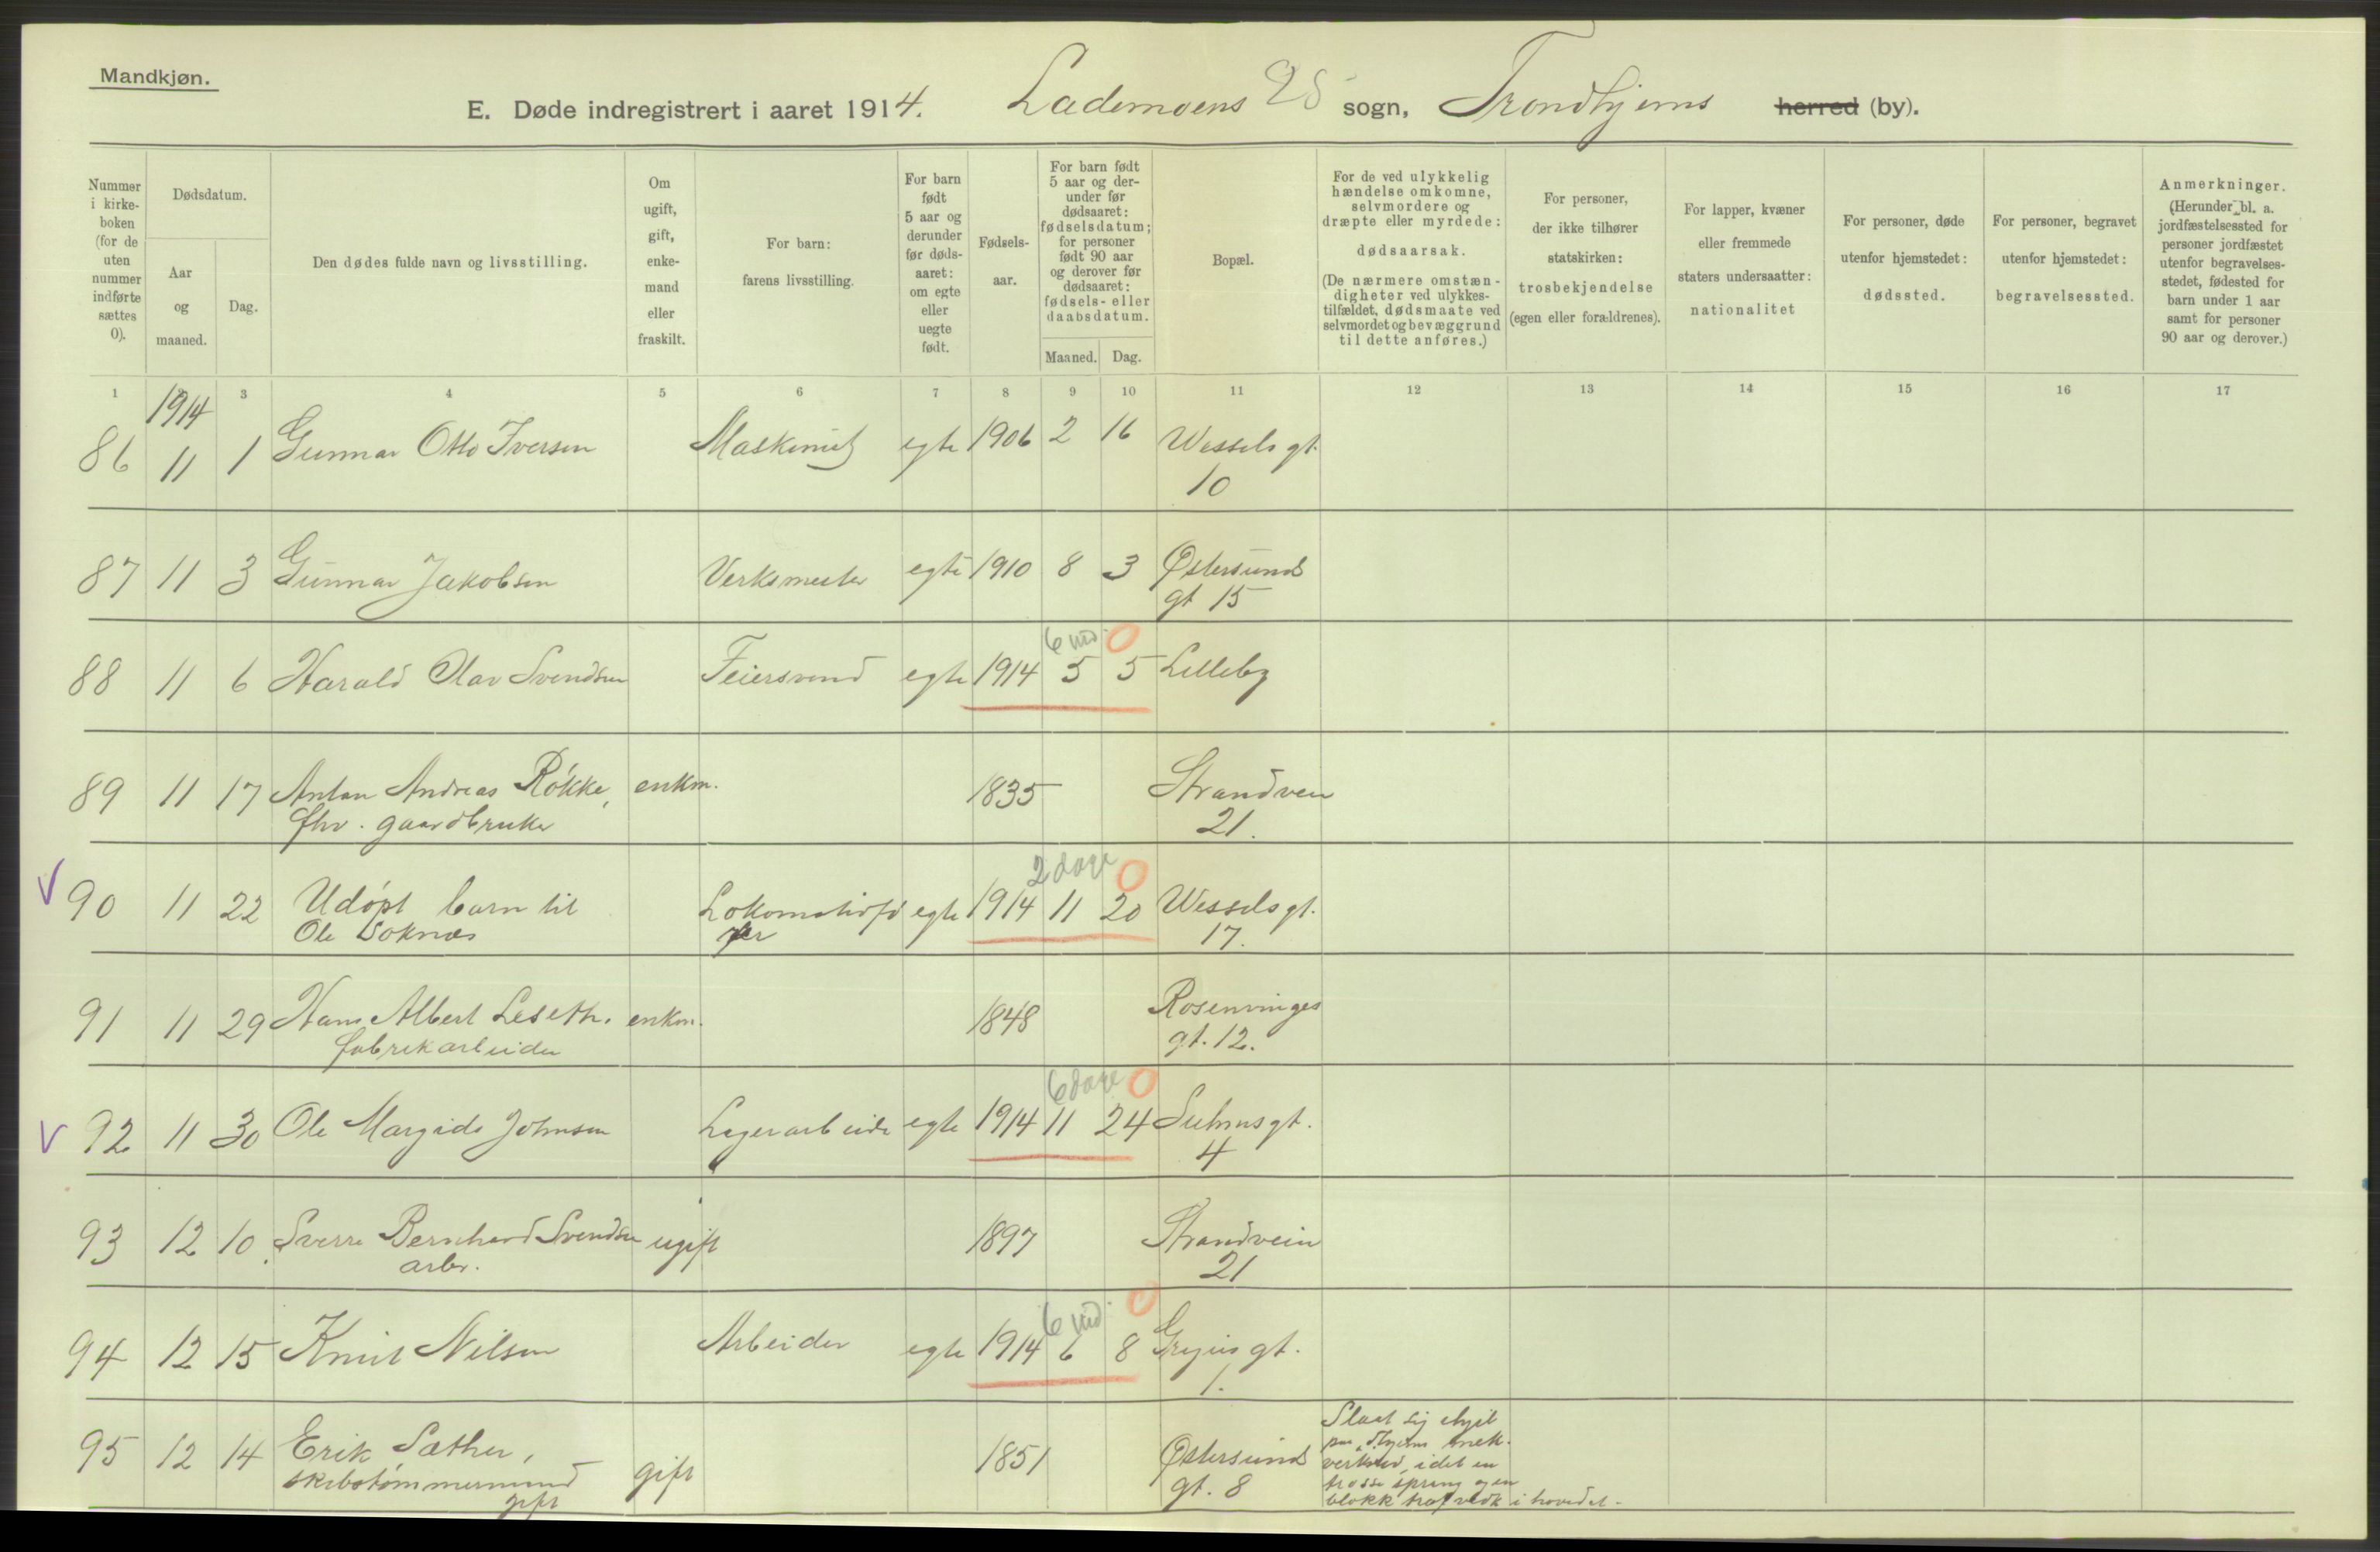 Mandkjøn.
E. Døde indregistrert i aaret 1914. Lademoens 28 sogn, Trondhjems herred (by).
Nummer i kirkeboken (for de uten nummer indførte sættes 0).
Dødsdatum.
Aar og maaned.
Dag.
Den dødes fulde navn og livsstilling.
Om ugift, gift, enkemand eller fraskilt.
For barn: farens livsstilling.
For barn født 5 aar og derunder før dødsaaret: om egte eller uegte født.
Fødselsaar.
For barn født 5 aar og derunder før dødsaaret: fødselsdatum; for personer født 90 aar og derover før dødsaaret: fødsels- eller daabsdatum.
Maaned. Dag.
Bopæl.
For de ved ulykkelig hændelse omkomne, selvmordere og dræpte eller myrdede: dødsaarsak. (De nærmere omstændigheter ved ulykkestilfældet, dødsmaate ved selvmordet og bevæggrund til dette anføres.)
For personer, der ikke tilhører statskirken: trosbekjendelse (egen eller forældrenes).
For lapper, kvæner eller fremmede staters undersaatter: nationalitet
For personer, døde utenfor hjemstedet: dødssted.
For personer, begravet utenfor hjemstedet: begravelsessted.
Anmerkninger. (Herunder bl. a. jordfæstelsessted for personer jordfæstet utenfor begravelsesstedet, fødested for barn under 1 aar samt for personer 90 aar og derover.)
1 3 4 5 6 7 8 9 10 11 12 13 14 15 16 17
1914
86 11 1 Gunnar Otto Iversen Maskinist egte 1906 2 16 Wessels gt.
10
87 11 3 Gunnar Jakobsen Verksmester egte 1910 8 3 Østersunds
gt 15
6 md. 0
88 11 6 Harald Olav Svendsen Feiersvend egte 1914 5 5 Lilleby
89 11 17 Anton Andreas Røkke, enkm. 1835 Strandveien
fhv. gaardbruker 21.
2 dage 0
V 90 11 22 Udøpt barn til Lokomotivfø egte 1914 11 20 Wessels gt.
Ole Soknæs rer 17.
91 11 29 Hans Albert Leseth. enkm. 1848 Rosenvinges
fabrikarbeider gt. 12.
6 dage 0
V 92 11 30 Ole Margido Johnsen Lagerarbeider egte 1914 11 24 Suhms gt.
4
93 12 10 Sverre Bernhard Svendsen ugift 1897 Strandveien
arbr. 21
6 md. 0
94 12 15 Knut Nilsen Arbeider egte 1914 6 8 gt.
1.
95 12 14 Erik Sæther, gift 1851 Østersunds Slaat sig ihjel
skibstømmermand gt. 8 paa Thjems mek.
gift verksted, idet en
trosse sprang og en
blokk traf vedk i hovedet.